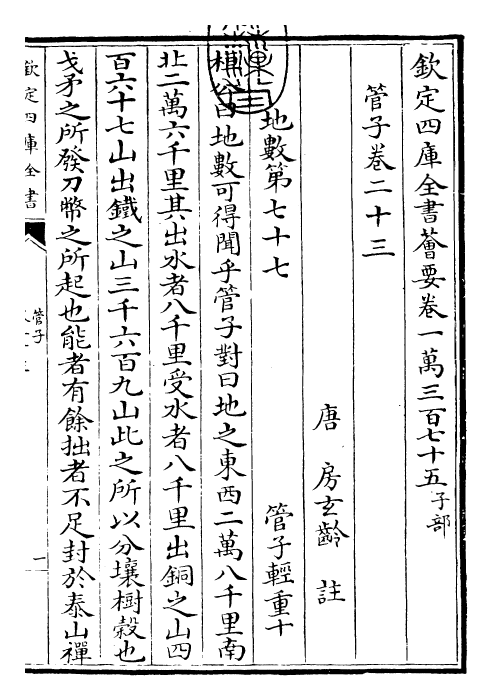 欽定四庫全書薈要卷一萬三百七十五子部
管子卷二十三
唐 房玄齡 註
地數第七十七 管子輕重十
桓公曰地數可得聞乎管子對曰地之東西二萬八千里南
北二萬六千里其出水者八千里受水者八千里出銅之山四
百六十七山出鐵之山三千六百九山此之所以分壤樹穀也
戈矛之所發刀幣之所起也能者有餘拙者不足封於泰山禪
欽定四庫全書
管子
一